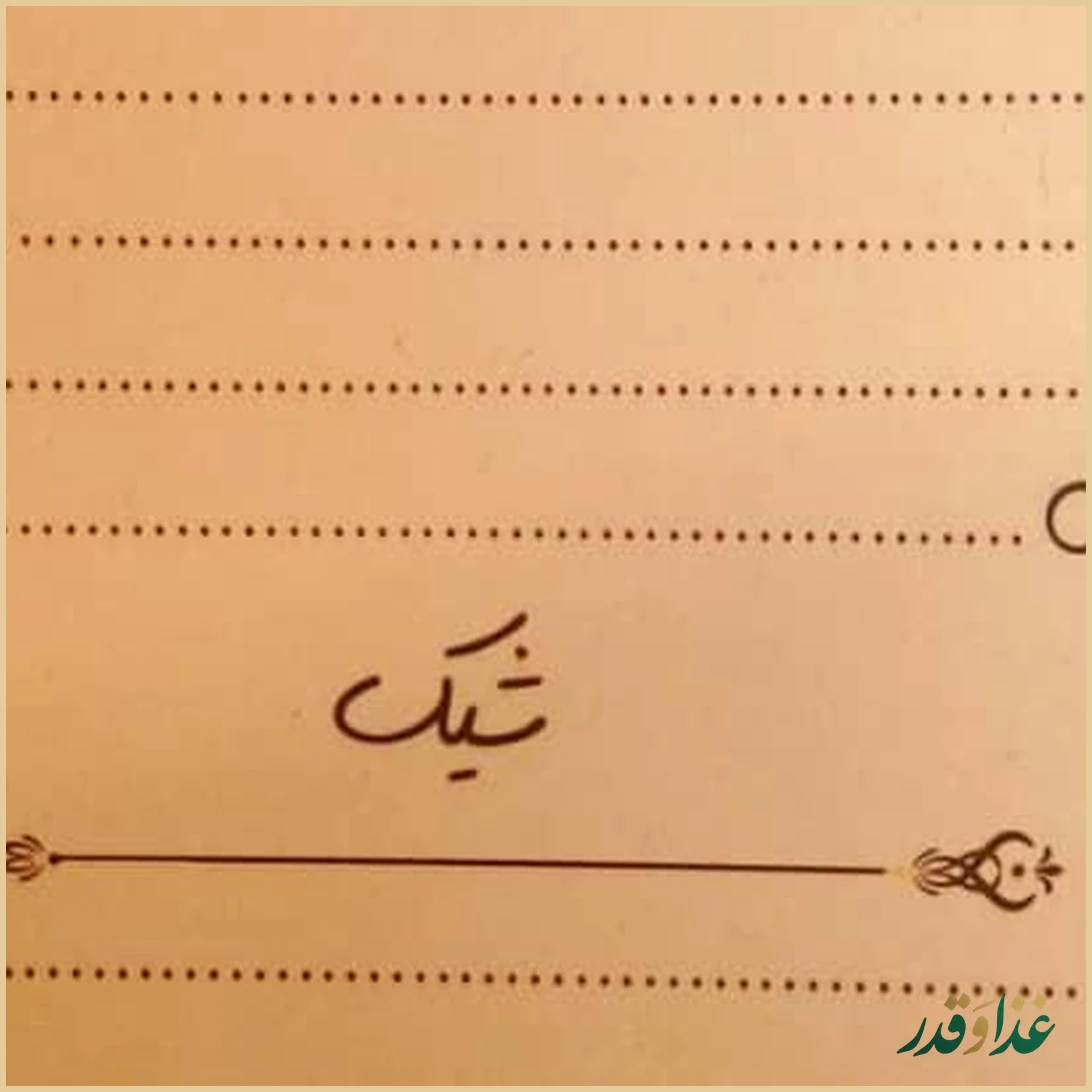 شیک
غذا و قدر